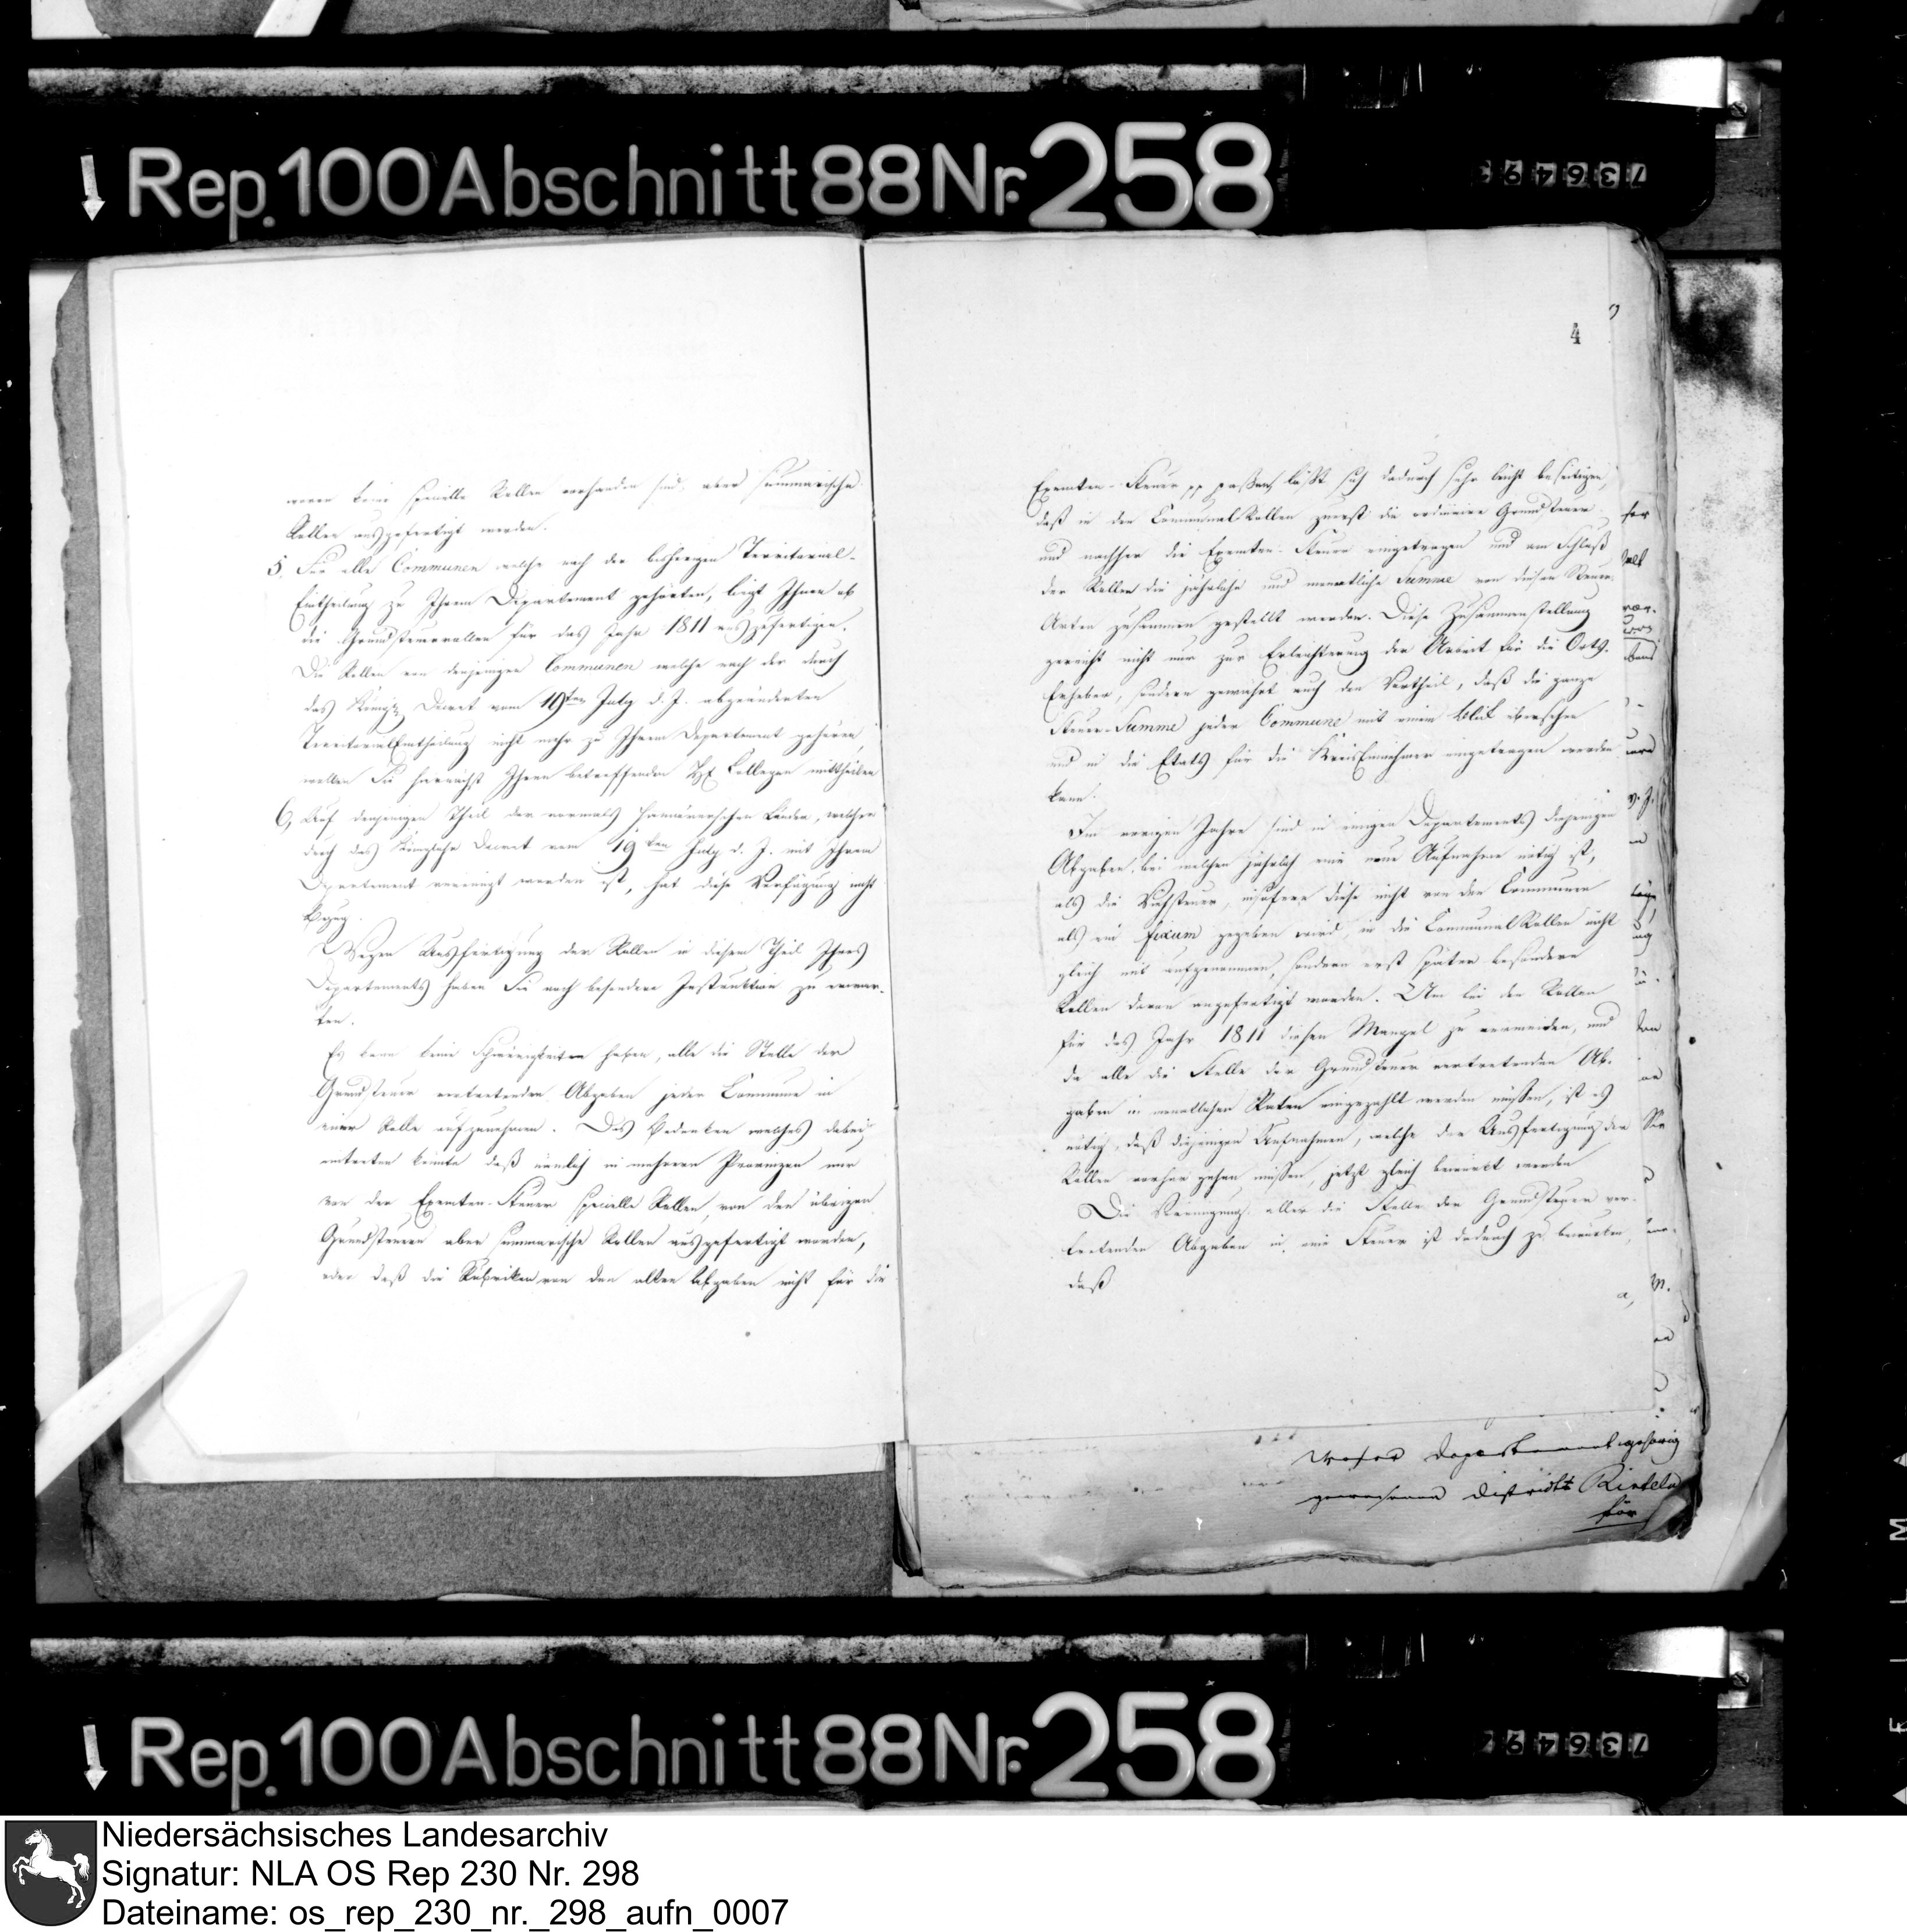 Rep. 100 Abschnitt 88 Nr. 258
736493
wovon keine specielle Rollen vorhanden sind, aber summarische
Rollen ausgefertigt werden.
5. Für alle Communen welche nach der bisherigen Territorial-
Eintheilung zu Ihrem Departement gehörten, liegt Ihnen ob
die Grundsteuerrollen für das Jahr 1811 auszufertigen.
Die Rollen von denjenigen Communen welche nach der durch
das Königl. Decret vom 19ten July d. J. abgeänderten
Territorial Eintheilung nicht mehr zu Ihrem Departement gehören,
wollen Sie hiernächst Ihren betreffenden Collegen mittheilen
6, Auf denjenigen Theil der vormals hannöverschen Landen, welcher
durch das Königliche Decret vom 19ten July d. J. mit Ihrem
Departement vereinigt worden ist, hat diese Verfügung nicht
Bezug.
Wegen Ausfertigung der Rollen in diesem Theil Ihres
Departements haben Sie noch besondere Instruktion zu erwar-
ten.
Es kann keine Schwierigkeiten haben, alle die Stelle der
Grundsteuer vertretenden Abgaben jeder Commune in
einer Rolle aufzunehmen. Das Bedenken welches dabei
eintreten könnte daß nämlich in mehrern Provinzen nur
von der Exemten-Steuer specielle Rollen, von den übrigen
Grundsteuern aber summarische Rollen ausgefertigt worden,
oder daß die Rubriken von den alten Abgaben nicht für die
4
Exemten-Steuer pp passen, läßt sich dadurch sehr leicht beseitigen,
daß in den Communal Rollen zuerst die ordinaire Grundsteuer
und nachher die Exemten-Steuer eingetragen und am Schluß
der Rollen die jährliche und monatliche Summe von diesen Steuer-
Arten zusammen gestellt werden. Diese Zusammenstellung
gereicht nicht nur zur Erleichterung der Arbeit für die Orts-
Erheber, sondern gewährt auch den Vortheil, daß die ganze
Steuer-Summe jeder Commune mit einem Blick übersehen
und in die Etats für die Kreis Einnehmer eingetragen werden
kann.
Im vorigen Jahre sind in einigen Departements diejenigen
Abgaben, bei welchen jährlich eine neue Aufnahme nötig ist,
als die Viehsteuer, insofern diese nicht von den Communen
als ein fixum gegeben wird, in die Communal Rollen nicht
gleich mit aufgenommen, sondern erst später besondere
Rollen davon angefertigt worden. Um bei den Rollen
für das Jahr 1811 diesen Mangel zu vermeiden, und
da alle die Stelle der Grundsteuer vertretenden Ab-
gaben in monatlichen Raten eingezahlt werden müssen, ist es
nötig, daß diejenigen Aufnahmen, welche der Ausfertigung der
Rollen vorher gehen müssen, jetzt gleich bewirkt werden
Die Vereinigung aller die Stelle der Grundsteuer ver-
tretenden Abgaben in eine Steuer ist dadurch zu bewirken,
daß
a,
Weser Departement gehörig
gewesenen Districkts Rinteln
für
Rep. 100 Abschnitt 88 Nr. 258
73649
Niedersächsisches Landesarchiv
Signatur: NLA OS Rep 230 Nr. 298
Dateiname: os_rep_230_nr._298_aufn_0007